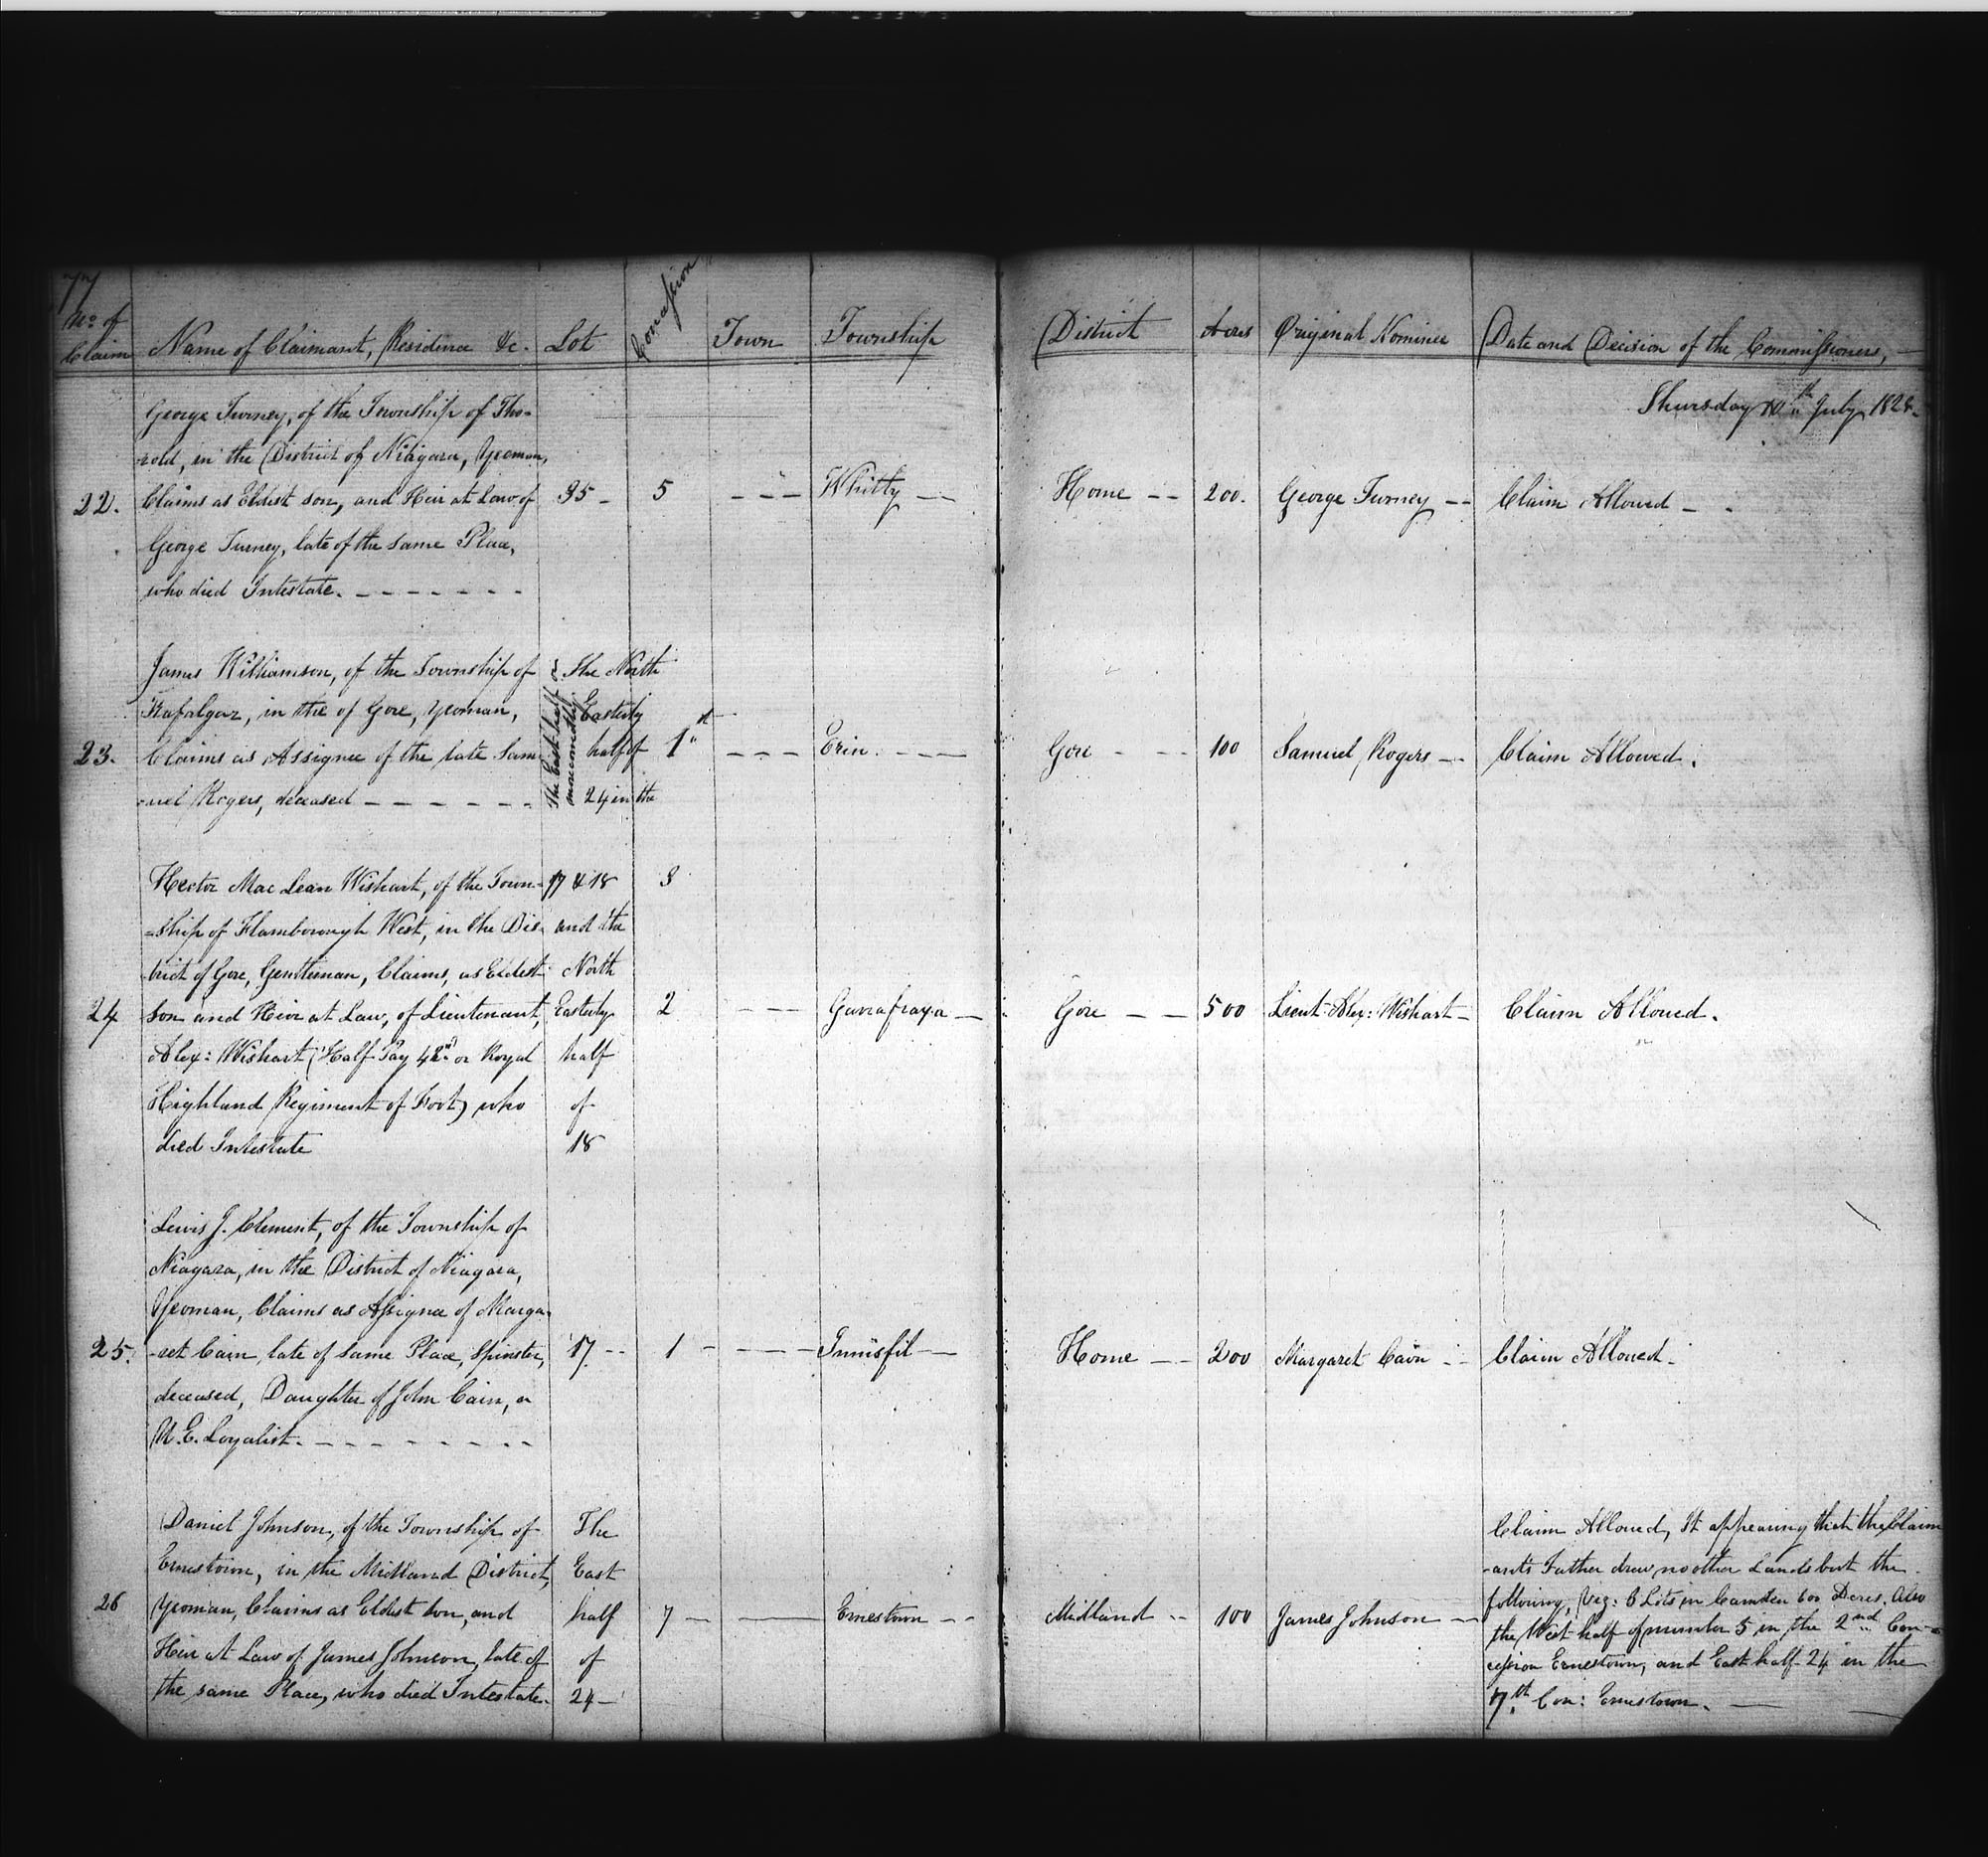 77
No. of Claim
Name of Claimant, Residence &c.
Lot
Concession
Town
Township
District
Acres
Original Nominee
Date and Decision of the Commissioners,
Thursday 10th July, 1828.
22.
George Turney, of the Township of Tho-
rold, in the District of Niagara, Yeoman,
Claims as Eldest son, and Heir at Law of
George Turney, late of the same Place,
who died Intestate. - - - - - - -
35 -
5
- - -
Whitby - -
Home - -
200.
George Turney - -
Claim Allowed -
23.
James Williamson, of the Township of
Trafalgar, in the of Gore, Yeoman,
Claims as Assignee of the late Sam-
-uel Rogers, deceased - - - - - -
The North
Easterly
half of
24 in the
The East half
1st
- - -
Erin. - - -
Gore - - -
100
Samuel Rogers - -
Claim Allowed.
24
Hector Mac Lean Wishart, of the Town-
-ship of Flamborough West, in the Dis-
-trict of Gore, Gentleman, Claims, as Eldest
Son and Heir at Law, of Lieutenant,
Alex: Wishart (Half Pay 42nd or Royal
Highland Regiment of Foot) who
died Intestate
17 & 18
and the
North
Easterly
half
of
18
3
2
- - -
Garrafraxa -
Gore - -
500
Lieut. Alex: Wishart -
Claim Allowed.
25.
Lewis J. Clement, of the Township of
Niagara, in the District of Niagara,
Yeoman, Claims as Assignee of Marga-
-ret Cain, late of same Place, Spinster,
deceased, Daughter of John Cain, a
U.E. Loyalist. - - - - - - - -
17 - -
1 -
- - - -
Innisfil -
Home - -
200
Margaret Cain - -
Claim Allowed -
26
Daniel Johnson, of the Township of
Ernestown, in the Midland District,
Yeoman, Claims as Eldest Son, and
Heir at Law of James Johnson, late of
the same Place, who died Intestate.
The
East
half
of
24 -
7 -
-
Ernestown - -
Midland - -
100
James Johnson - -
Claim Allowed, It appearing that the Claim
-ant's Father drew no other Lands but the
following, Viz: 6 Lots in Camden 600 Acres. Also
the West half of number 5 in the 2nd Con-
cession Ernestown, and East half 24 in the
7th Con: Ernestown. -